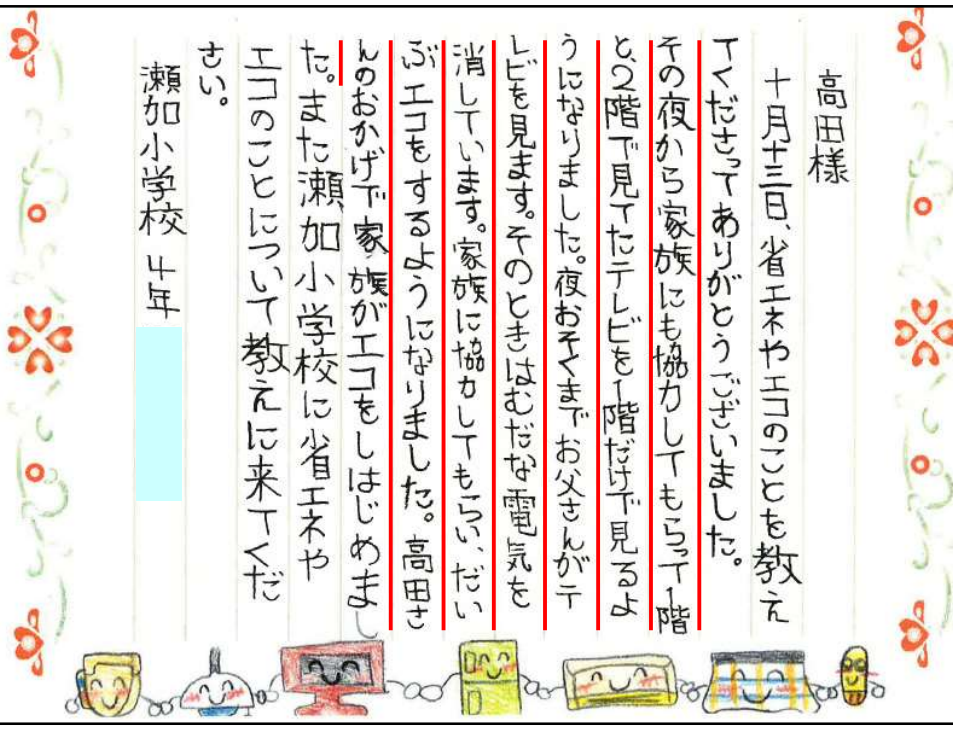 高田様
十月十三日、省エネやエコのことを教え
てくださってありがとうございました。
その夜から家族にも協力してもらって1階
と、2階で見てたテレビを1階だけで見るよ
うになりました。夜おそくまでお父さんがテ
レビを見ます。そのときはむだな電気を
消しています。家族に協力してもらい、だい
ぶエコをするようになりました。高田さ
んのおかげで家族がエコをしはじめまし
た。また瀬加小学校に省エネや
エコのことについて教えに来てくだ
さい。
瀬加小学校 4年